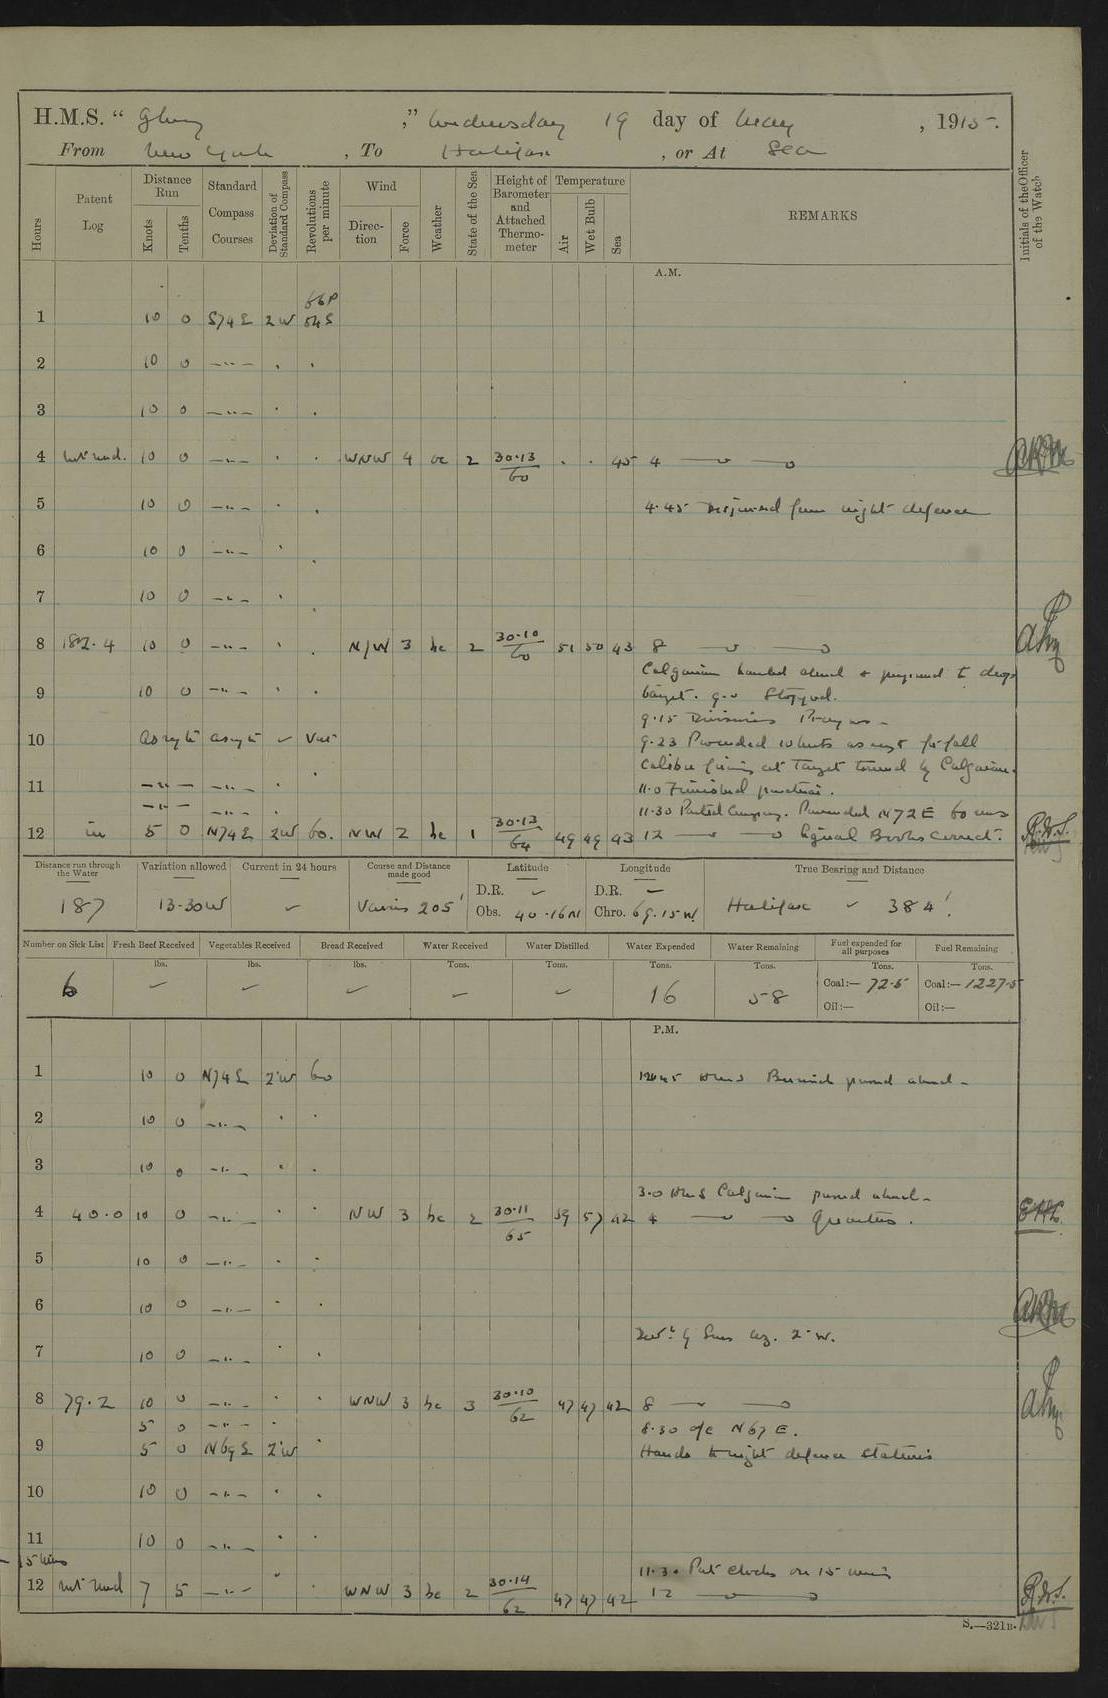 H.M.S. " Glory ," Wednesday 19 day of May , 1915.
From New York , To Halifax , or At Sea
Hours Patent Log Distance Run Knots Tenths Standard Compass Courses Deviation of Standard Compass Revolutions per minute Wind Direction Force Weather State of the Sea Height of Barometer and Attached Thermometer Temperature Air Wet Bulb Sea REMARKS Initials of the Officer of the Watch
A.M.
66P
1 10 0 S74E 2W 54S
2 10 0 —"— . .
3 10 0 —"— . .
4 not used. 10 0 —"— . . WNW 4 oc 2 30.13/60 . . 45 4
5 10 0 —"— . . 4.45 Disjoined from night defence
6 10 0 —"— . .
7 10 0 —"— . .
8 182.4 10 0 —"— . . N/W 3 bc 2 30.10/60 51 50 43 8
Calgarian hauled ahead & prepared to drop
9 10 0 —"— . . target. 9.0 Stopped.
9.15 Divisions Prayers –
10 As reqte as reqte ✓ Var 9.23 Proceeded 10 knots as reqt for full
calibre firing at Target towed by Calgarian.
11 —"— —"— . 11.0 Finished practice.
—"— —"— . 11.30 Parted Company. Proceeded N72E 60 revs
12 in 5 0 N74E 2W 60. NW 2 bc 1 30.13/64 49 49 43 12 Signal Books Correct. R.W.S.
Distance run through the Water Variation allowed Current in 24 hours Course and Distance made good Latitude Longitude True Bearing and Distance
D.R. ✓ D.R. —
187 13-30W ✓ Various 205' Obs. 40.16N Chro. 69.15W. Halifax ✓ 384'.
Number on Sick List Fresh Beef Received Vegetables Received Bread Received Water Received Water Distilled Water Expended Water Remaining Fuel expended for all purposes Fuel Remaining
lbs. lbs. lbs. Tons. Tons. Tons. Tons. Tons. Tons.
6 — — — — — 16 58 Coal:— 72.5 Coal:— 1227.5
Oil:— Oil:—
P.M.
1 10 0 N74E 2'W 60 12.45 HMS Berwick passed ahead –
2 10 0 —"— . .
3 10 0 —"— . .
3.0 HMS Calgarian passed ahead –
4 40.0 10 0 —"— . . NW 3 bc 2 30.11/65 59 57 42 4 Quarters.
5 10 0 —"— . .
6 10 0 —"— . .
Devn by Suns Az. 2°W.
7 10 0 —"— .
8 79.2 10 0 —"— . . WNW 3 bc 3 30.10/62 47 47 42 8
5 0 —"— . 8.30 a/c N67E.
9 5 0 N69E 2'W . Hands to night defence stations
10 10 0 —"— . .
11 10 0 —"— . .
– 15 mins 11.30 Put clocks on 15 mins
12 not used 7 5 —"— . . WNW 3 bc 2 30.14/62 47 47 42 12 R.W.S.
S.—321B.